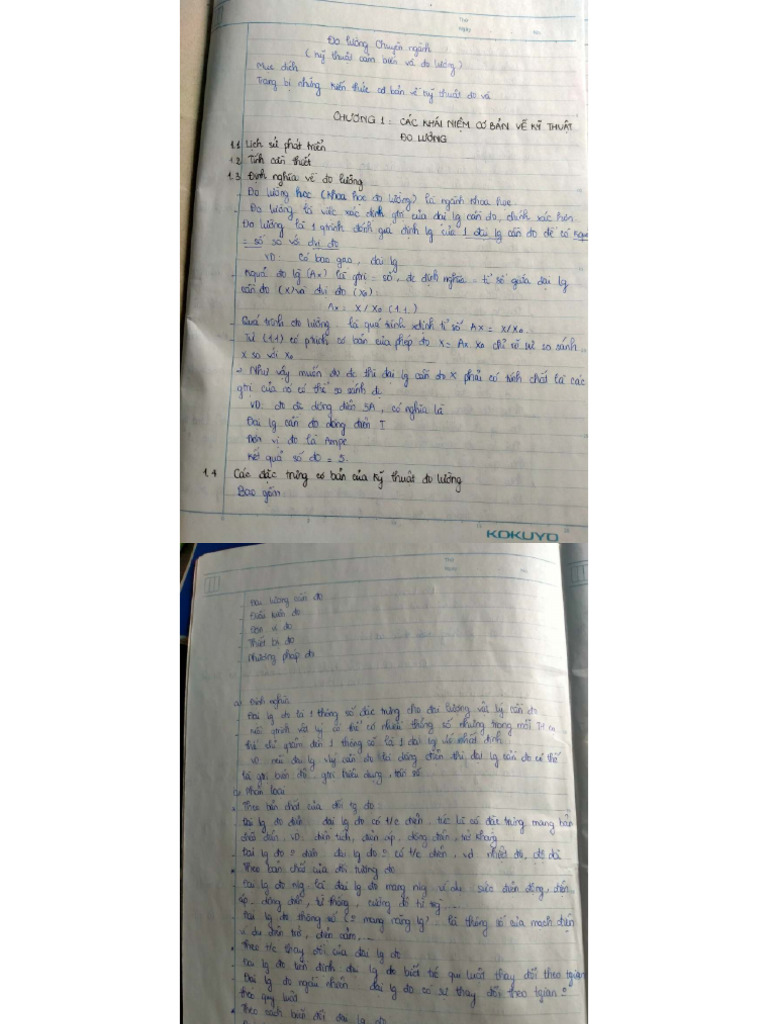 Thứ
Ngày
Đo lường Chuyên ngành
( Kỹ thuật cảm biến và đo lường )
Mục đích
Trang bị những kiến thức cơ bản về kỹ thuật đo và
CHƯƠNG 1 : CÁC KHÁI NIỆM CƠ BẢN VỀ KỸ THUẬT
ĐO LƯỜNG
1.1 Lịch sử phát triển
1.2 Tính cần thiết
1.3 Định nghĩa về đo lường
- Đo lường học (Khoa học đo lường) là ngành khoa học
- Đo lường là việc xác định gtrị của đại lg cần đo, chính xác hơn
Đo lường là 1 qtrình đánh giá định lg của 1 đại lg cần đo để có kquả
= số so với đvị đo
VD: Có bao gạo, đại lg
- Kquả đo lg (Ax) là gtrị = số, đc định nghĩa = tỉ số giữa đại lg
cần đo (X) và đvị đo (X0) :
Ax = X / X0 (1.1)
- Quá trình đo lường là quá trình xđịnh tỉ số Ax = X/X0
- Từ (1.1) có ptrình cơ bản của phép đo X = Ax. X0 chỉ rõ sự so sánh
X so với X0
→ Như vậy muốn đo đc thì đại lg cần đo X phải có tính chất là các
gtrị của nó có thể so sánh đc
VD: đo đc dòng điện 5A, có nghĩa là
Đại lg cần đo dòng điện I
Đơn vị đo là Ampe
Kết quả số đo = 5.
1.4 Các đặc trưng cơ bản của kỹ thuật đo lường
Bao gồm
KOKUYO
Thứ
Ngày
- Đại lượng cần đo
- Điều kiện đo
- Đơn vị đo
- Thiết bị đo
- Phương pháp đo
a) Định nghĩa
- Đại lg đo là 1 thông số đặc trưng cho đại lượng vật lý cần đo
- Mỗi qtrình vật lý có thể có nhiều thông số nhưng trong mỗi TH cụ
thể chỉ qtâm đến 1 thông số là 1 đại lg vlý nhất định
VD: nếu đại lg vlý cần đo là dòng điện thì đại lg cần đo có thể
là gtrị biên độ, gtrị hiệu dụng, tần số
b) Phân loại
* Theo bản chất của đối tg đo :
- Đại lg đo điện : đại lg đo có t/c điện, tức là có đặc trưng mang bản
chất điện. VD: điện tích, điện áp, dòng điện, trở kháng
- Đại lg đo điện : đại lg đo có t/c điện, vd: nhiệt độ, độ dài
* Theo bản chất của đối tượng đo
- Đại lg đo nlg là đại lg đo mang nlg ví dụ : sức điện động, điện
áp, dòng điện, từ thông, cường độ từ trg, ...
- Đại lg đo thông số ( mang năng lg) : là thông số của mạch điện
ví dụ điện trở, điện cảm, ...
* Theo t/c thay đổi của đại lg đo
- Đại lg đo tiền định đại lg đo biết trc qui luật thay đổi theo tgian
- Đại lg đo ngẫu nhiên đại lg đo có sự thay đổi theo tgian
theo quy luật
* Theo cách biến đổi đại lg đo